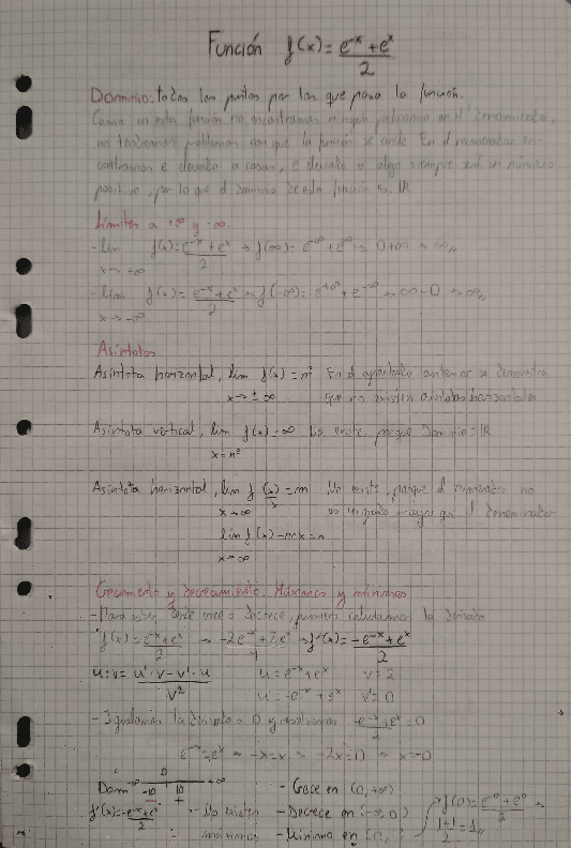 Función f(x) = (e^-x + e^x)/2
Dominio: todos los puntos por los que pasa la función.
Como en esta función no encontramos ningún en el denominador,
no tendremos problemas con que la función se anule. En el numerador en-
contramos e elevado a cosas, e elevado a algo siempre será un número
positivo, por lo que el dominio de esta función es: ℝ
Límites a +∞ y -∞.
- lim f(x) = (e^-x + e^x)/2 → f(∞) = e^-∞ + e^∞ → 0+∞ → ∞,,
x → +∞
- lim f(x) = (e^-x + e^x)/2 → f(-∞) = e^+∞ + e^-∞ → ∞+0 → ∞,,
x → -∞
Asíntotas
Asíntota horizontal, lim f(x) = nº En el apartado anterior se demuestra
x → ±∞ que no existen asíntotas horizontales
Asíntota vertical, lim f(x) = ∞ No existe, porque Dominio = ℝ
x = nº
Asíntota horizontal, lim f(x)/x = m No existe, porque el numerador no
x → ∞ es un grado mayor que el denominador
lim f(x) - mx = n
x → ∞
Crecimiento y decrecimiento. Máximos y mínimos
- Para saber crece o decrece, primero calculamos la derivada
f(x) = (e^-x + e^x)/2 → (-2e^-x + 2e^x)/4 → f'(x) = (-e^-x + e^x)/2
u:v = (u'·v - v'·u)/v² u = e^-x + e^x v = 2
u' = -e^-x + e^x v' = 0
- Igualamos la derivada a 0 y resolvemos (-e^-x + e^x)/2 = 0
e^-x = e^x → -x = x → -2x = 0 → x = 0
0
Dom -∞ +∞ - Crece en (0, +∞)
-10 10
f'(x) = (-e^-x + e^x)/2 - + - No existen - Decrece en (-∞, 0) f(0) = (e^-0 + e^0)/2 →
máximos - Mínimo en (0, 1) (1+1)/2 = 1,,